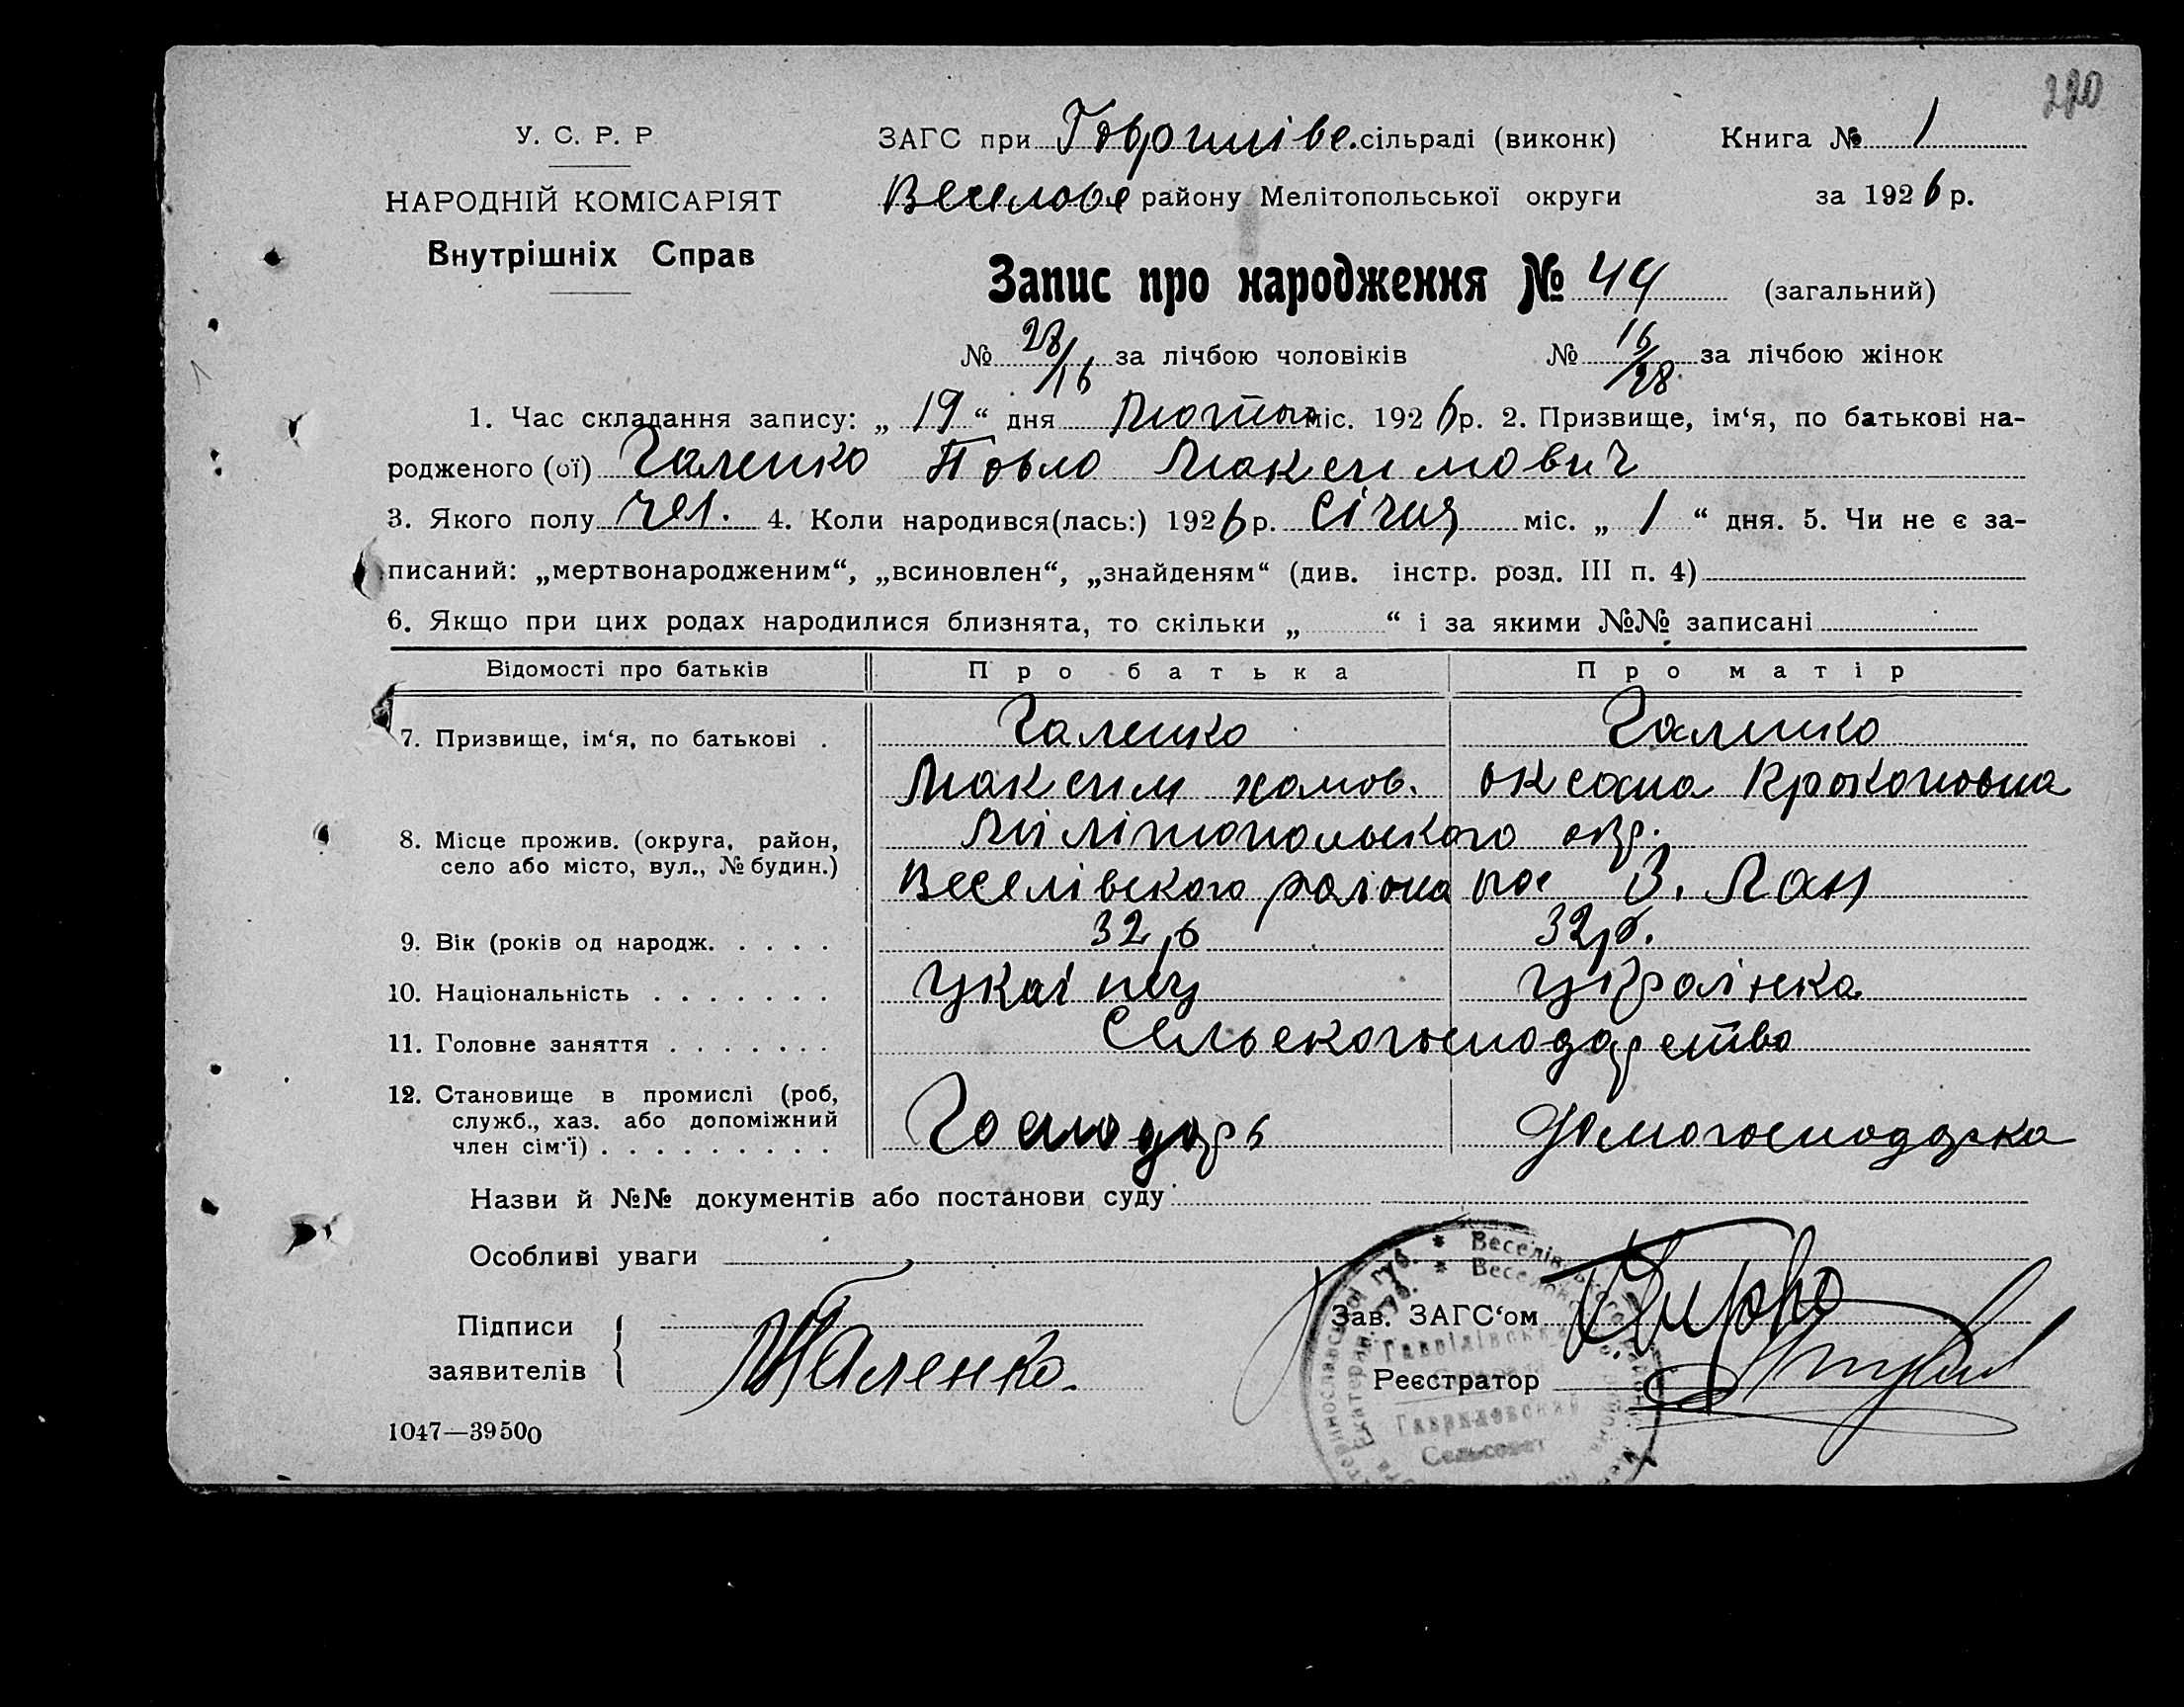 220
У. С. Р. Р
НАРОДНІЙ КОМІСАРІЯТ
Внутрішніх Справ
ЗАГС при Гаврилівс. сільраді (виконк) Книга № 1
Веселов району Мелітопольської округи за 1926 р.
Запис про народження № 44 (загальний)
№ 28/16 за лічбою чоловіків № 16/28 за лічбою жінок
1. Час складання запису: „ 19 “ дня Лютого міс. 1926 р. 2. Призвище, ім‘я, по батькові на-
родженого (ої) Галенко Павло Максимович
3. Якого полу чол. 4. Коли народився(лась:) 1926 р. Січня міс. „ 1 “ дня. 5. Чи не є за-
писаний: „мертвонародженим“, „всиновлен“, „знайденям“ (див. інстр. розд. III п. 4)
6. Якщо при цих родах народилися близнята, то скільки „ “ і за якими №№ записані
Відомості про батьків Про батька Про матір
7. Призвище, ім‘я, по батькові . Галенко Галенко
Максим хамов. Оксана Прокоповна
8. Місце прожив. (округа, район, Мілітопольского окр.
село або місто, вул., № будин.) Веселівского району пос В. Лан
9. Вік (років од народж. . . . . 32 р 32 р.
10. Національність . . . . . . . Украінец Украінка
11. Головне заняття . . . . . . . Сельскогосподарство
12. Становище в промислі (роб,
служб., хаз. або допоміжний
член сім‘ї) . . . . . . . . . Господарь Домогосподарка
Назви й №№ документів або постанови суду
Особливі уваги
Підписи
заявителів МГаленко.
Зав. ЗАГС‘ом
Реєстратор
Гаврилівська
Сільрада
Гавриловский
Сельсовет
1047—39500